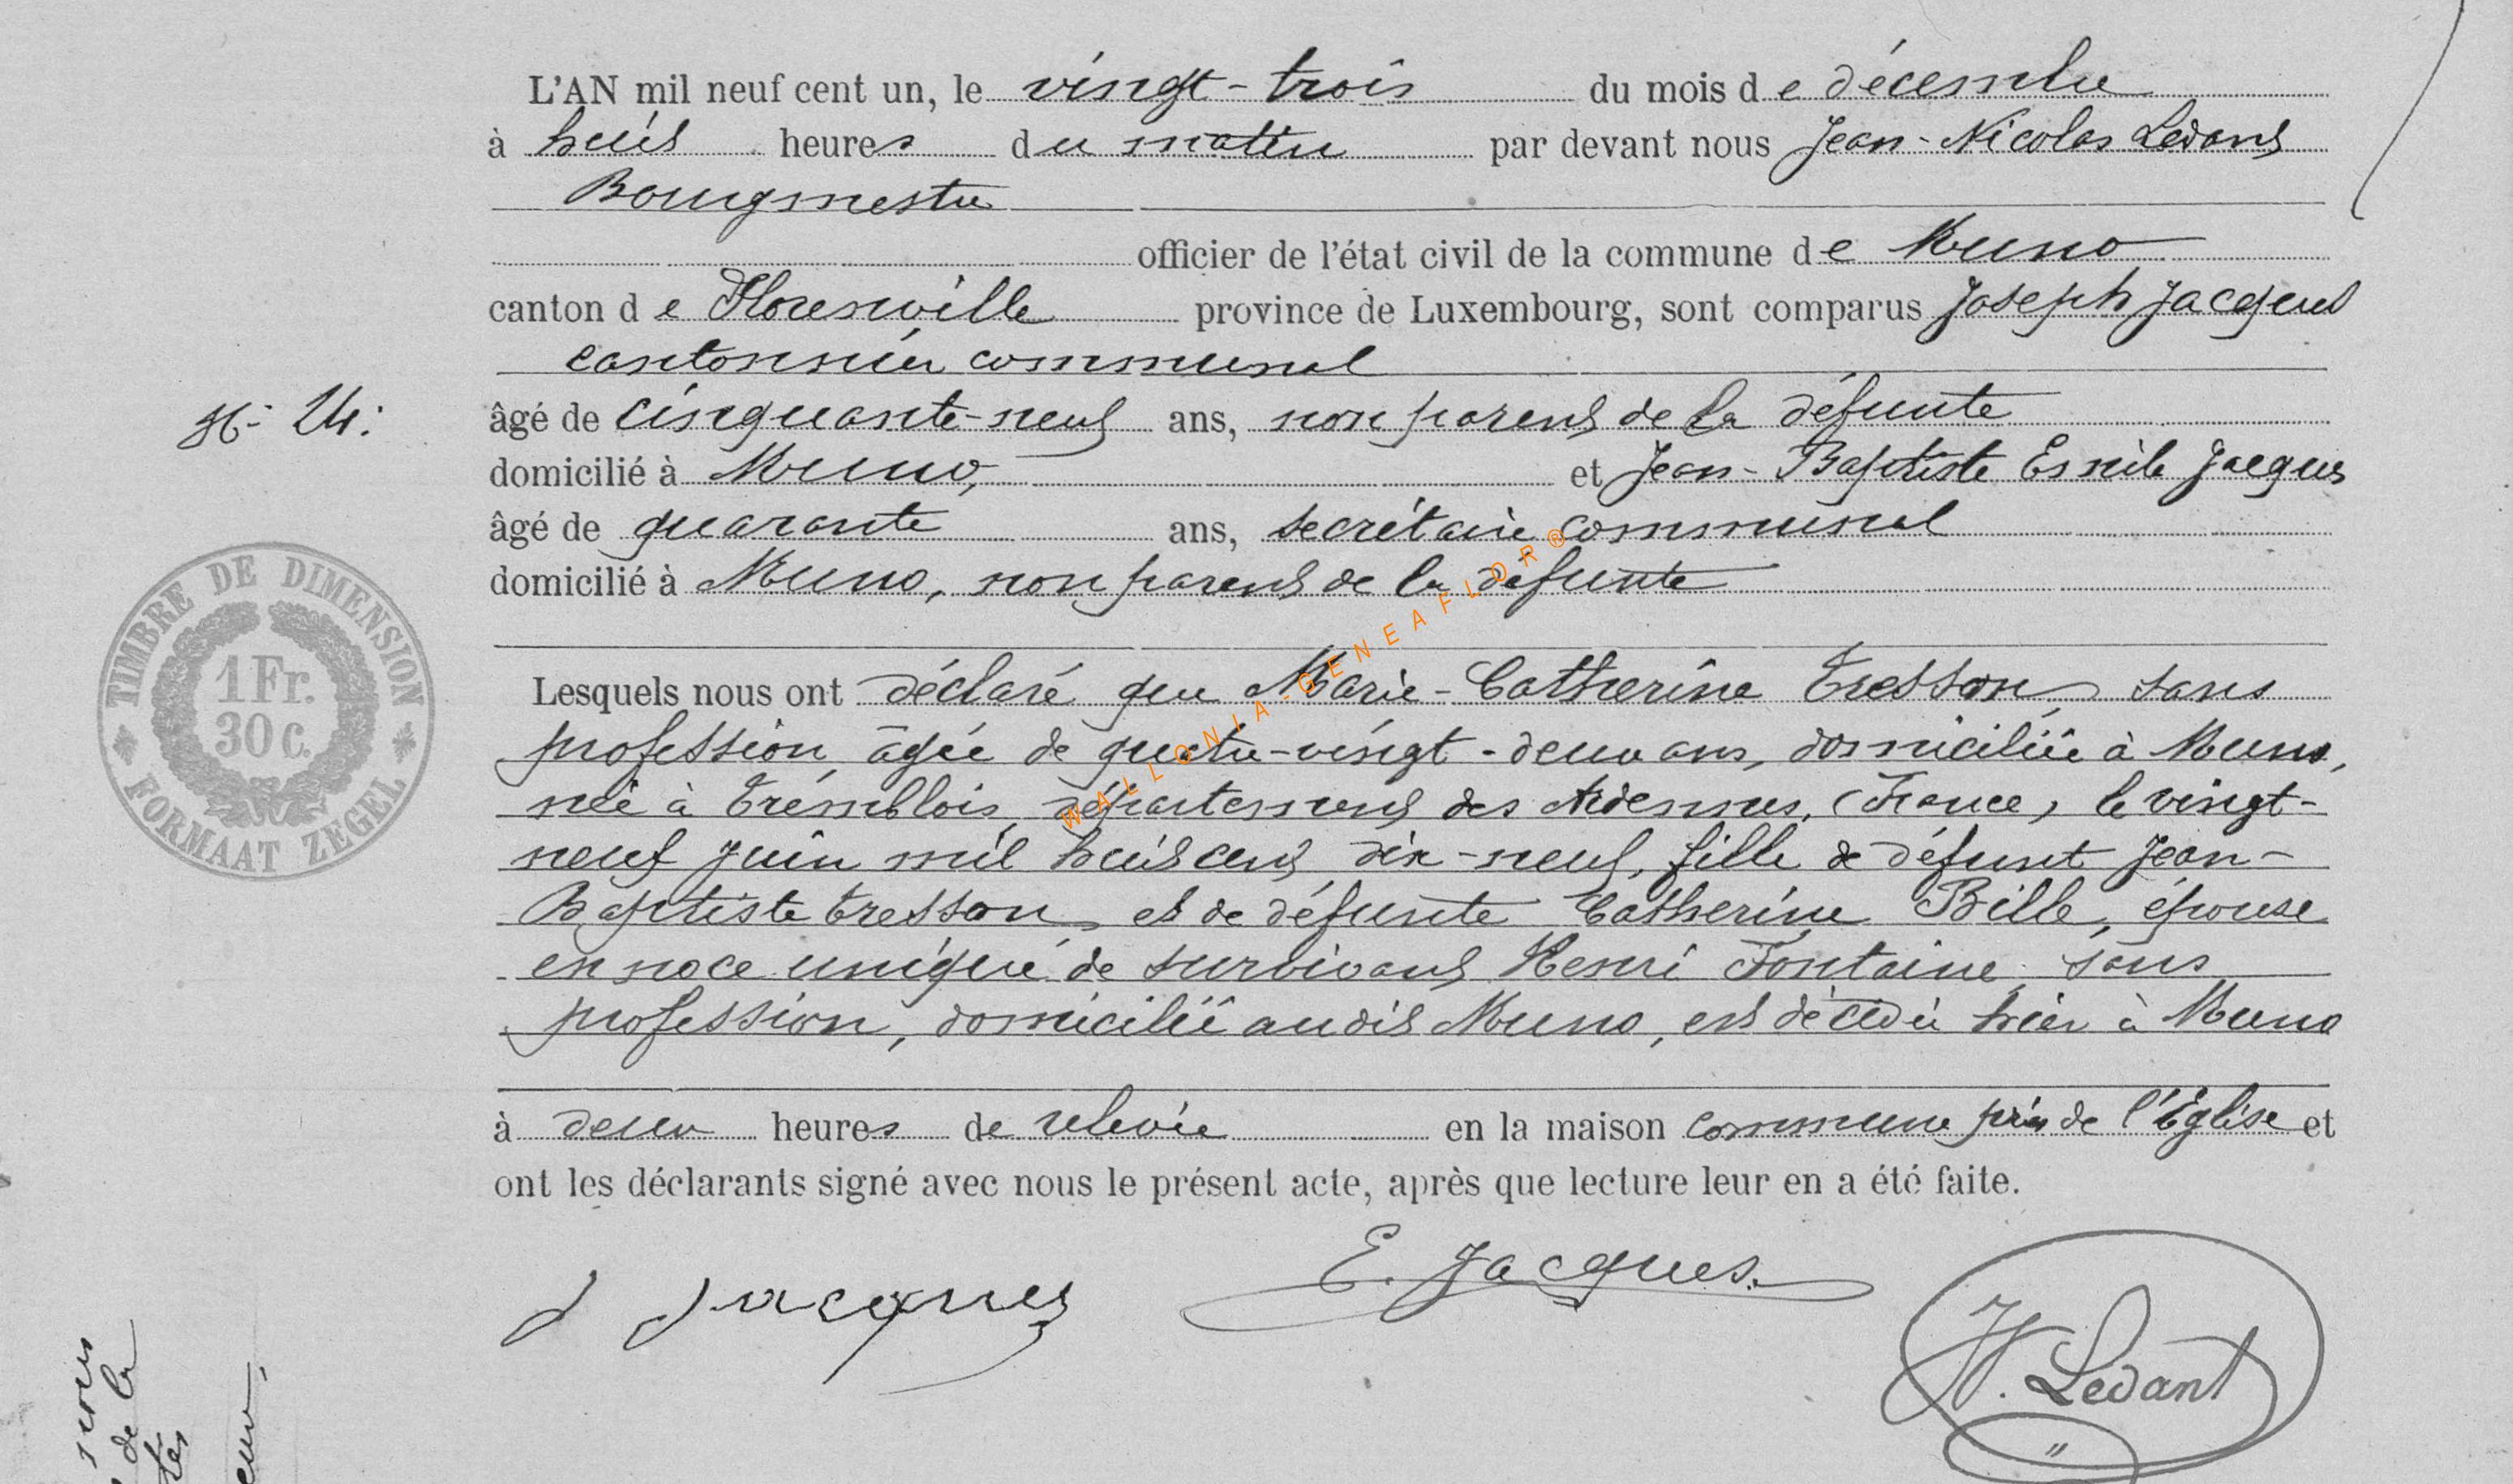 L'AN mil neuf cent un, le vingt-trois du mois de décembre
à huit heures du matin par devant nous Jean-Nicolas Ledant
Bourgmestre
officier de l'état civil de la commune de Muno
canton de Florenville province de Luxembourg, sont comparus Joseph Jacques
cantonnier communal
N° 24.
âgé de cinquante-neuf ans, non parent de la défunte
domicilié à Muno, et Jean-Baptiste Emile Jacques
âgé de quarante ans, secrétaire communal
domicilié à Muno, non parent de la défunte
TIMBRE DE DIMENSION
1 Fr.
30 c.
FORMAAT ZEGEL
WALLONIA-GENEAFLOR®
Lesquels nous ont déclaré que Marie-Catherine Tresson, sans
profession, âgée de quatre-vingt-deux ans, domiciliée à Muno,
née à Tremblois, département des Ardennes, (France), le vingt-
neuf juin mil huit cent dix-neuf, fille de défunt Jean-
Baptiste Tresson et de défunte Catherine Bille, épouse
en noce unique de survivant Henri Fontaine, sans
profession, domicilié audit Muno, est décédée hier à Muno
à deux heures de relevée en la maison commune près de l'Eglise et
ont les déclarants signé avec nous le présent acte, après que lecture leur en a été faite.
J Jacques
E. Jacques.
N. Ledant
nous
de la